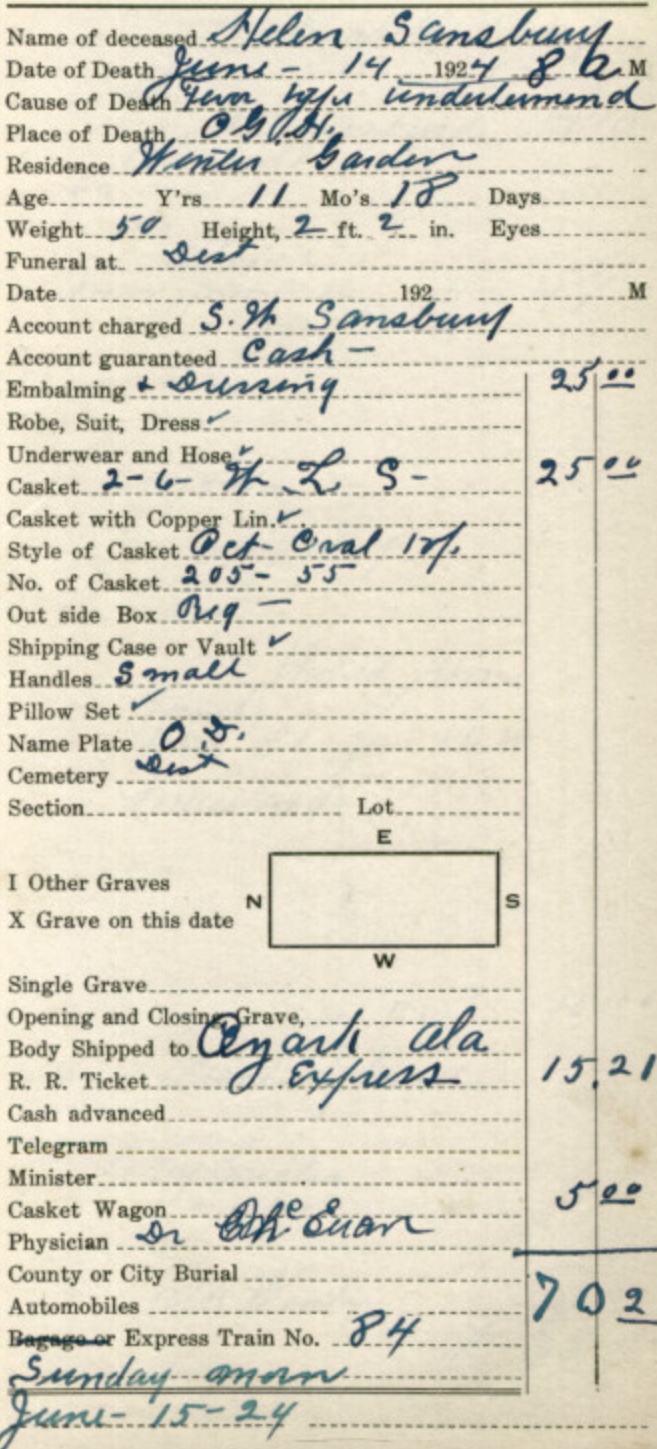 Name of deceased Helen Sansbury
Date of Death June - 14 1924 8 a M
Cause of Death Fever type undertermend
Place of Death O G. H.
Residence Winter Garden
Age Y'rs 11 Mo's 18 Days
Weight 50 Height, 2 ft. 2 in. Eyes
Funeral at Dist
Date 192 M
Account charged S. W Sansbury
Account guaranteed Cash -
Embalming + Dressing 25 00
Robe, Suit, Dress ✓
Underwear and Hose ✓
Casket 2-6- W L S- 25 00
Casket with Copper Lin. ✓
Style of Casket Oct Oval
No. of Casket 205- 55
Out side Box Reg -
Shipping Case or Vault ✓
Handles Small
Pillow Set ✓
Name Plate O. D.
Cemetery Dist
Section Lot
E
I Other Graves
N S
X Grave on this date
W
Single Grave
Opening and Closing Grave,
Body Shipped to Ozark Ala
R. R. Ticket Express 15.21
Cash advanced
Telegram
Minister
Casket Wagon 5 00
Physician Dr McEuan
County or City Burial
Automobiles 70 2
Bagage or Express Train No. 84
Sunday morn
June - 15-24